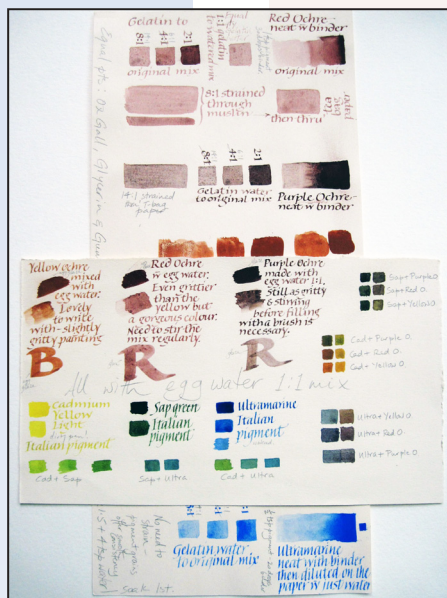 Gelatin to
8:1 4:1 2:1
original mix
1:1 gelatin
to watercolour
Red Ochre-
neat w binder
original mix
8:1 strained
through
muslin
then thru
tea
bag
paper
Equal pts: Ox Gall, Glycerin & Gum
14:1 strained
thru T-bag
paper
8:1 4:1 2:1
Gelatin water
to original mix
Purple Ochre-
neat w binder
Yellow ochre
mixed
with
egg water.
Lovely
to write
with-slightly
gritty painting
B
Red Ochre
w egg water.
Even grittier
than the
yellow but
a gorgeous colour.
Need to stir the
mix regularly.
R
Purple Ochre
made with
egg water 1:1.
Still as gritty
& stirring
before filling
with a brush is
necessary.
R
Sap + Purple O.
Sap + Red O.
Sap + Yellow O.
Cad + Purple O.
Cad + Red O.
Cad + Yellow O.
All with egg water 1:1 mix
Cadmium
Yellow
Light
Italian pigment
Sap green
Italian
pigment
Ultramarine
Italian
pigment
Ultra + Yellow O.
Ultra + Red O.
Ultra + Purple O.
Cad + Sap
Sap + Ultra
Cad + Ultra
No need to
strain -
pigment grains
offer good
consistency
Soak 1st.
Gelatin water
to original mix
Ultramarine
neat with binder,
then diluted on the
paper w just water